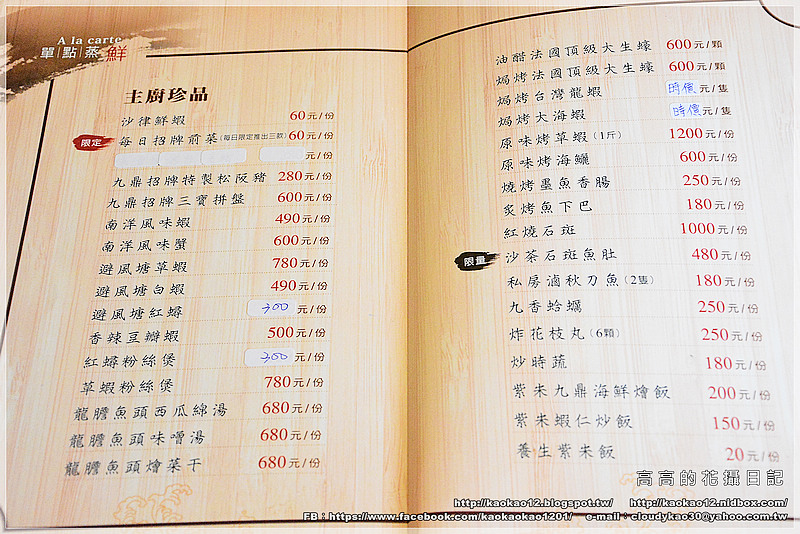 A la carte
單點蒸鮮
主廚珍品
沙律鮮蝦 60元/份
限定 每日招牌前菜(每日限定推出三款) 60元/份
元/份
九鼎招牌特製松阪豬 280元/份
九鼎招牌三寶拼盤 600元/份
南洋風味蝦 490元/份
南洋風味蟹 600元/份
避風塘草蝦 780元/份
避風塘白蝦 490元/份
避風塘紅蟳 300元/份
香辣豆瓣蝦 500元/份
紅蟳粉絲煲 300元/份
草蝦粉絲煲 780元/份
龍膽魚頭西瓜綿湯 680元/份
龍膽魚頭味噌湯 680元/份
龍膽魚頭燴菜干 680元/份
油醋法國頂級大生蠔 600元/顆
焗烤法國頂級大生蠔 600元/顆
焗烤台灣龍蝦 時價元/隻
焗烤大海蝦 時價元/隻
原味烤草蝦(1斤) 1200元/份
原味烤海鱺 600元/份
燒烤墨魚香腸 250元/份
炙烤魚下巴 180元/份
紅燒石斑 1000元/份
限量 沙茶石斑魚肚 480元/份
私房滷秋刀魚(2隻) 180元/份
九香蛤蠣 250元/份
炸花枝丸(6顆) 250元/份
炒時蔬 180元/份
紫朱九鼎海鮮燴飯 200元/份
紫朱蝦仁炒飯 150元/份
養生紫朱飯 20元/份
高高的花攝日記
http://kaokao12.blogspot.tw/ http://kaokao12.nidbox.com/
FB：https://www.facebook.com/kaokaokao1201/ e-mail：cloudykao30@yahoo.com.tw